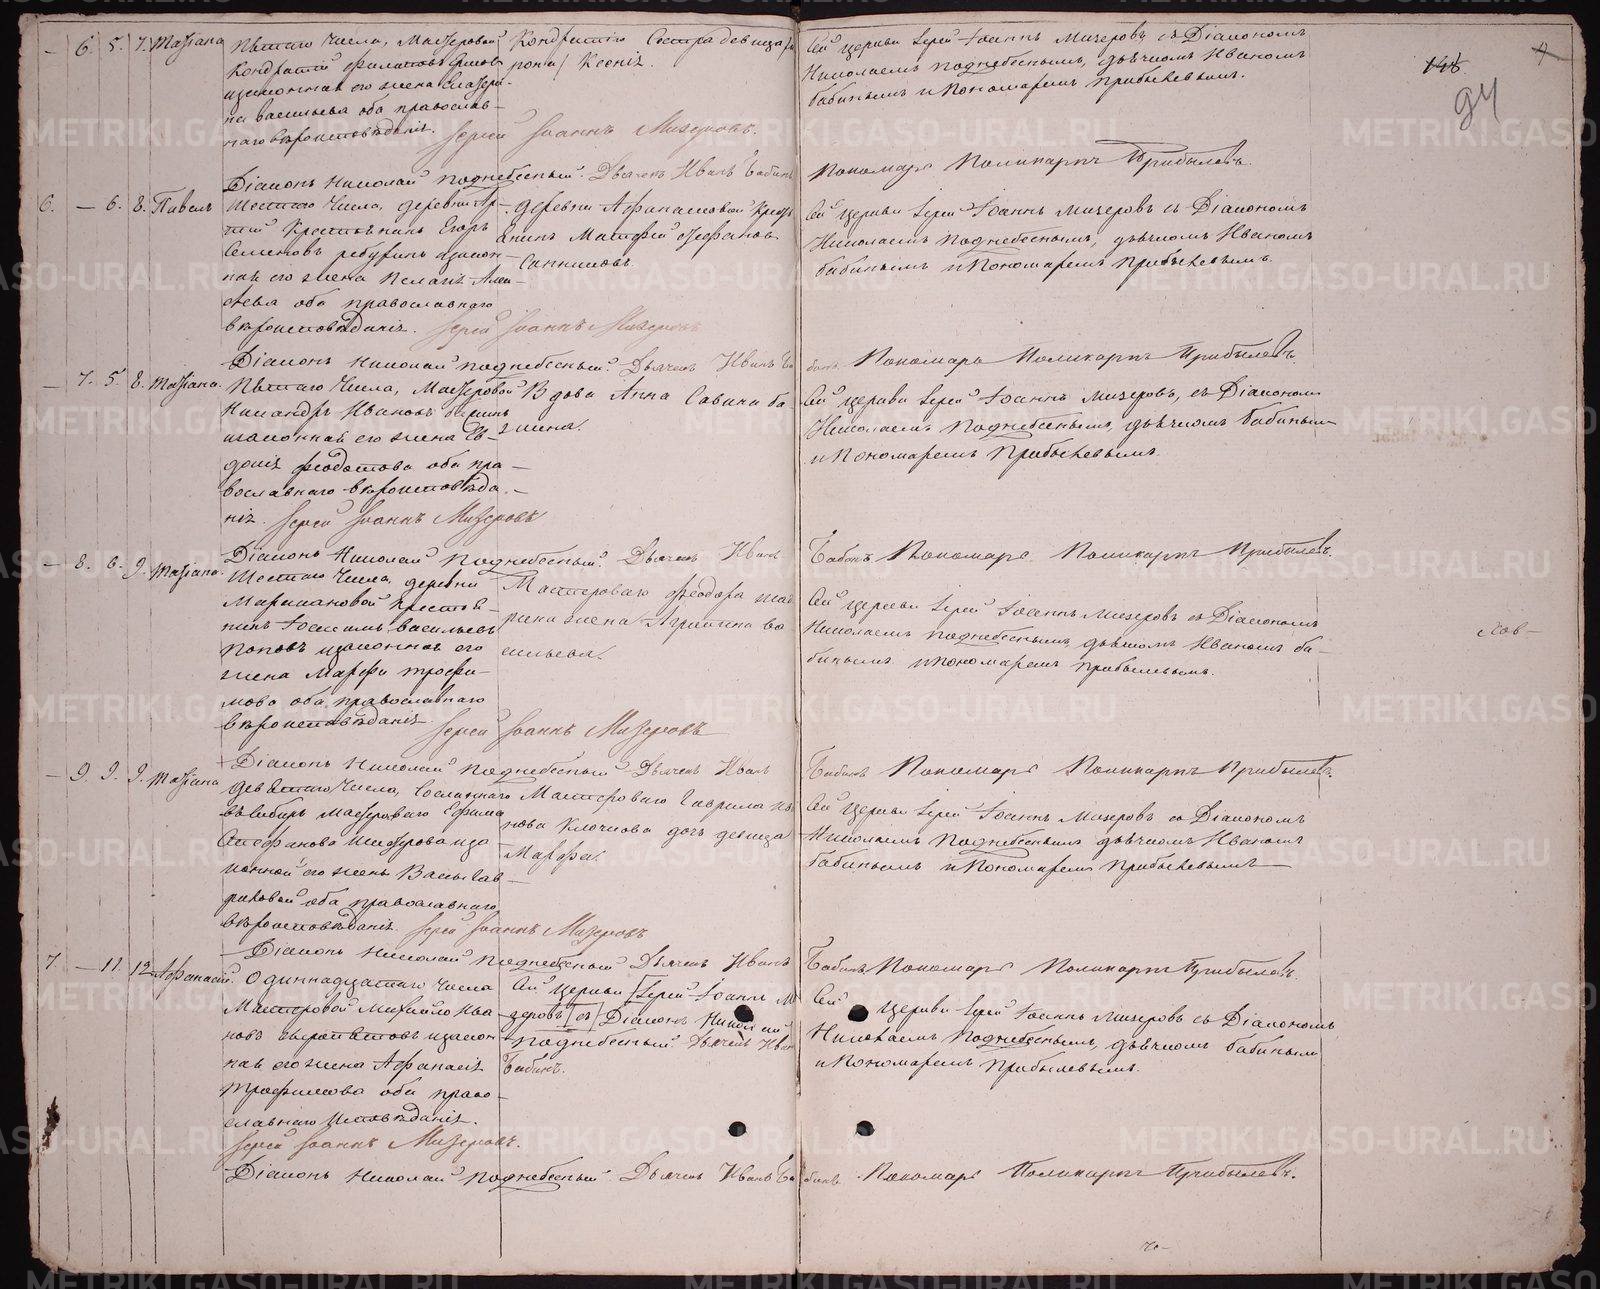 — 6. 5. 7. Татiана
Пятаго числа, Мастеровой
Кондратiй Филатовъ
и законная его жена Екатери-
на Васильева оба православ-
наго вѣроисповѣданiя.
Кондратiя Сестра девица
Ксенiя.
Iерей Iоаннъ Мизеровъ.
Сей церкви Iерей Iоаннъ Мизеровъ съ Дiакономъ
Николаемъ Поднебеснымъ, дьячкомъ Иваномъ
Бабинымъ и Пономаремъ Прибылевымъ.
148
94
Дiаконъ Николай Поднебесный. Дьячекъ Иванъ Бабинъ
Пономарь Поликарпъ Прибылевъ.
6. — 6. 8. Павелъ
Шестаго числа, деревни
Крестьянинъ Егоръ
Семеновъ и закон-
ная его жена Пелагiя Алек-
сѣева оба православнаго
вѣроисповѣданiя.
деревни Афанасковой Крестья-
нинъ Матфей
Санниковъ.
Iерей Iоаннъ Мизеровъ
Сей церкви Iерей Iоаннъ Мизеровъ съ Дiакономъ
Николаемъ Поднебеснымъ, дьячкомъ Иваномъ
Бабинымъ и Пономаремъ Прибылевымъ.
Дiаконъ Николай Поднебесный. Дьячекъ Иванъ Бабинъ. Пономарь Поликарпъ Прибылевъ.
— 7. 5. 8. Татiана.
Пятаго числа, Мастеровой
Никандръ Ивановъ
и законная его жена Ев-
докiя Феодотова оба пра-
вославнаго вѣроисповѣда-
нiя.
Вдова Анна Савина
Iерей Iоаннъ Мизеровъ
Сей церкви Iерей Iоаннъ Мизеровъ, съ Дiакономъ
Николаемъ Поднебеснымъ, дьячкомъ Бабинымъ
и Пономаремъ Прибылевымъ.
Дiаконъ Николай Поднебесный. Дьячекъ Иванъ
Бабинъ Пономарь Поликарпъ Прибылевъ.
— 8. 6. 9. Татiана.
Шестаго числа, деревни
Марамановой Крестья-
нинъ Iоакимъ Васильевъ
Поповъ и законная его
жена Марфа Трофи-
мова оба православнаго
вѣроисповѣданiя.
Мастероваго Феодора
жена Агрипина Ва-
сильева.
Iерей Iоаннъ Мизеровъ
Сей церкви Iерей Iоаннъ Мизеровъ съ Дiакономъ
Николаемъ Поднебеснымъ, дьячкомъ Иваномъ Ба-
бинымъ и Пономаремъ Прибылевымъ.
Дiаконъ Николай Поднебесный Дьячекъ Иванъ
Бабинъ Пономарь Поликарпъ Прибылевъ.
— 9. 9. 9. Татiана
Девятаго числа, Сосланнаго
въ Сибирь мастероваго Ефима
Стефанова и за-
конной его жены Васы Гав-
риловой оба православнаго
вѣроисповѣданiя.
Мастероваго Гаврила Ива-
нова Клочкова дочь девица
Марфа.
Iерей Iоаннъ Мизеровъ
Сей церкви Iерей Iоаннъ Мизеровъ съ Дiакономъ
Николаемъ Поднебеснымъ дьячкомъ Иваномъ
Бабинымъ и Пономаремъ Прибылевымъ
Дiаконъ Николай Поднебесный Дьячекъ Иванъ
Бабинъ Пономарь Поликарпъ Прибылевъ.
7. — 11. 12. Афанасiй.
Одиннадцатаго числа
Мастеровой Михайло Ива-
новъ и закон-
ная его жена Афанасiя
Трофимова оба право-
славнаго исповѣданiя.
Сей церкви Iерей Iоаннъ Ми-
зеровъ съ Дiаконъ Николай
Поднебесный. Дьячекъ Иванъ
Бабинъ.
Iерей Iоаннъ Мизеровъ.
Сей церкви Iерей Iоаннъ Мизеровъ съ Дiакономъ
Николаемъ Поднебеснымъ, дьячкомъ Бабинымъ
и Пономаремъ Прибылевымъ.
Дiаконъ Николай Поднебесный. Дьячекъ Иванъ Бабинъ. Пономарь Поликарпъ Прибылевъ.
METRIKI.GASO-URAL.RU